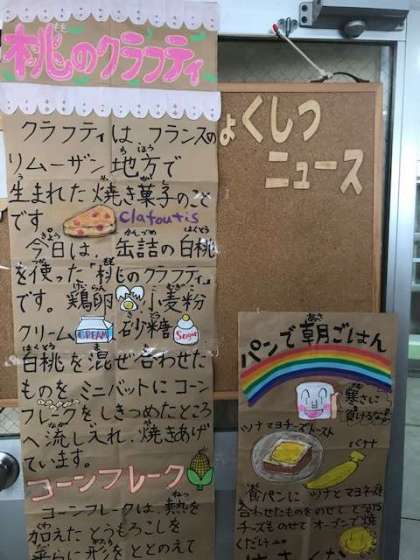 桃のクラフティ
クラフティは、フランスの
リムーザン地方で
生まれた焼き菓子のこと
です。
clafoutis
今日は、缶詰の白桃
を使った「桃のクラフティ」
です。鶏卵 小麦粉
クリーム CREAM 砂糖 Sugar
白桃を混ぜ合わせた
ものを、ミニバットにコーン
フレークをしきつめたところ
へ流し入れ、焼きあげ
ています。
コーンフレーク
コーンフレークは、
加えたとうもろこしを
平らに形をととのえて
ょくしつ
ニュース
パンで朝ごはん
寒さに
負けるなぁ
ツナマヨチーズトースト
バナナ
食パンにツナとマヨネーズ
合わせたものをのせて
チーズものせてオーブンで焼
くだけ